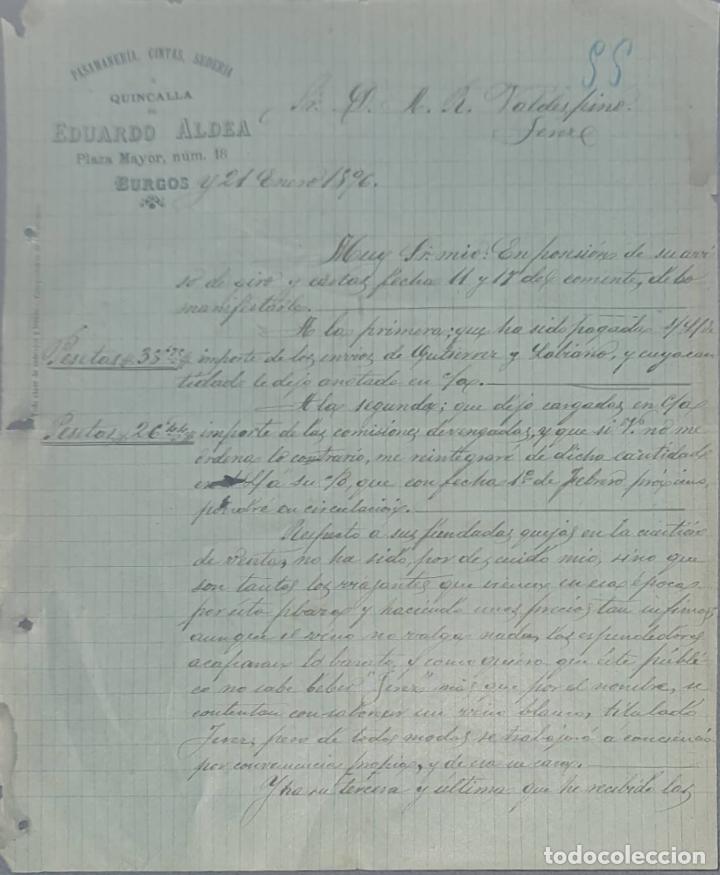 PASAMANERÍA, CINTAS, SEDERÍA
Y
QUINCALLA
DE
EDUARDO ALDEA
Plaza Mayor, núm. 18
BURGOS y 21 Enero 1896.
55
Sr. D. A. R. Valdespino.
Jerez
Muy Sr. mio: En posesión de su avi
so de giro y cartas fecha 11 y 17 del corriente, debo
manifestarle.
A la primera; que ha sido pagada s/
Pesetas 35'75 importe de los envios de Gutierrez y Labiano, y cuya can
tidad le dejo anotada en c/a.
A la segunda; que dejo cargadas en c/a
Pesetas 26'44 importe de las comisiones devengadas, y que si V. no me
ordena lo contrario, me reintegraré de dicha cantidad
en á su c/, que con fecha 1º de Febrero próximo,
pondré en circulación.
Respecto a sus fundadas quejas en la cuestión
de ventas, no ha sido, por descuido mio, sino que
son tantos los viajantes que vienen en esas épocas
por esta plaza y haciendo unos precios tan infimos,
aunque el vino no valga nada, los espendedores
acaparan lo barato, y como quiera que este públi
co no sabe beber "Jérez" más que por el nombre, se
contentan con saborear un vino blanco, titulado
Jerez, pero de todos modos se trabajará a conciencia
por conveniencia propia, y de esa su casa.
Y ha su tercera y última que he recibido las
todocoleccion